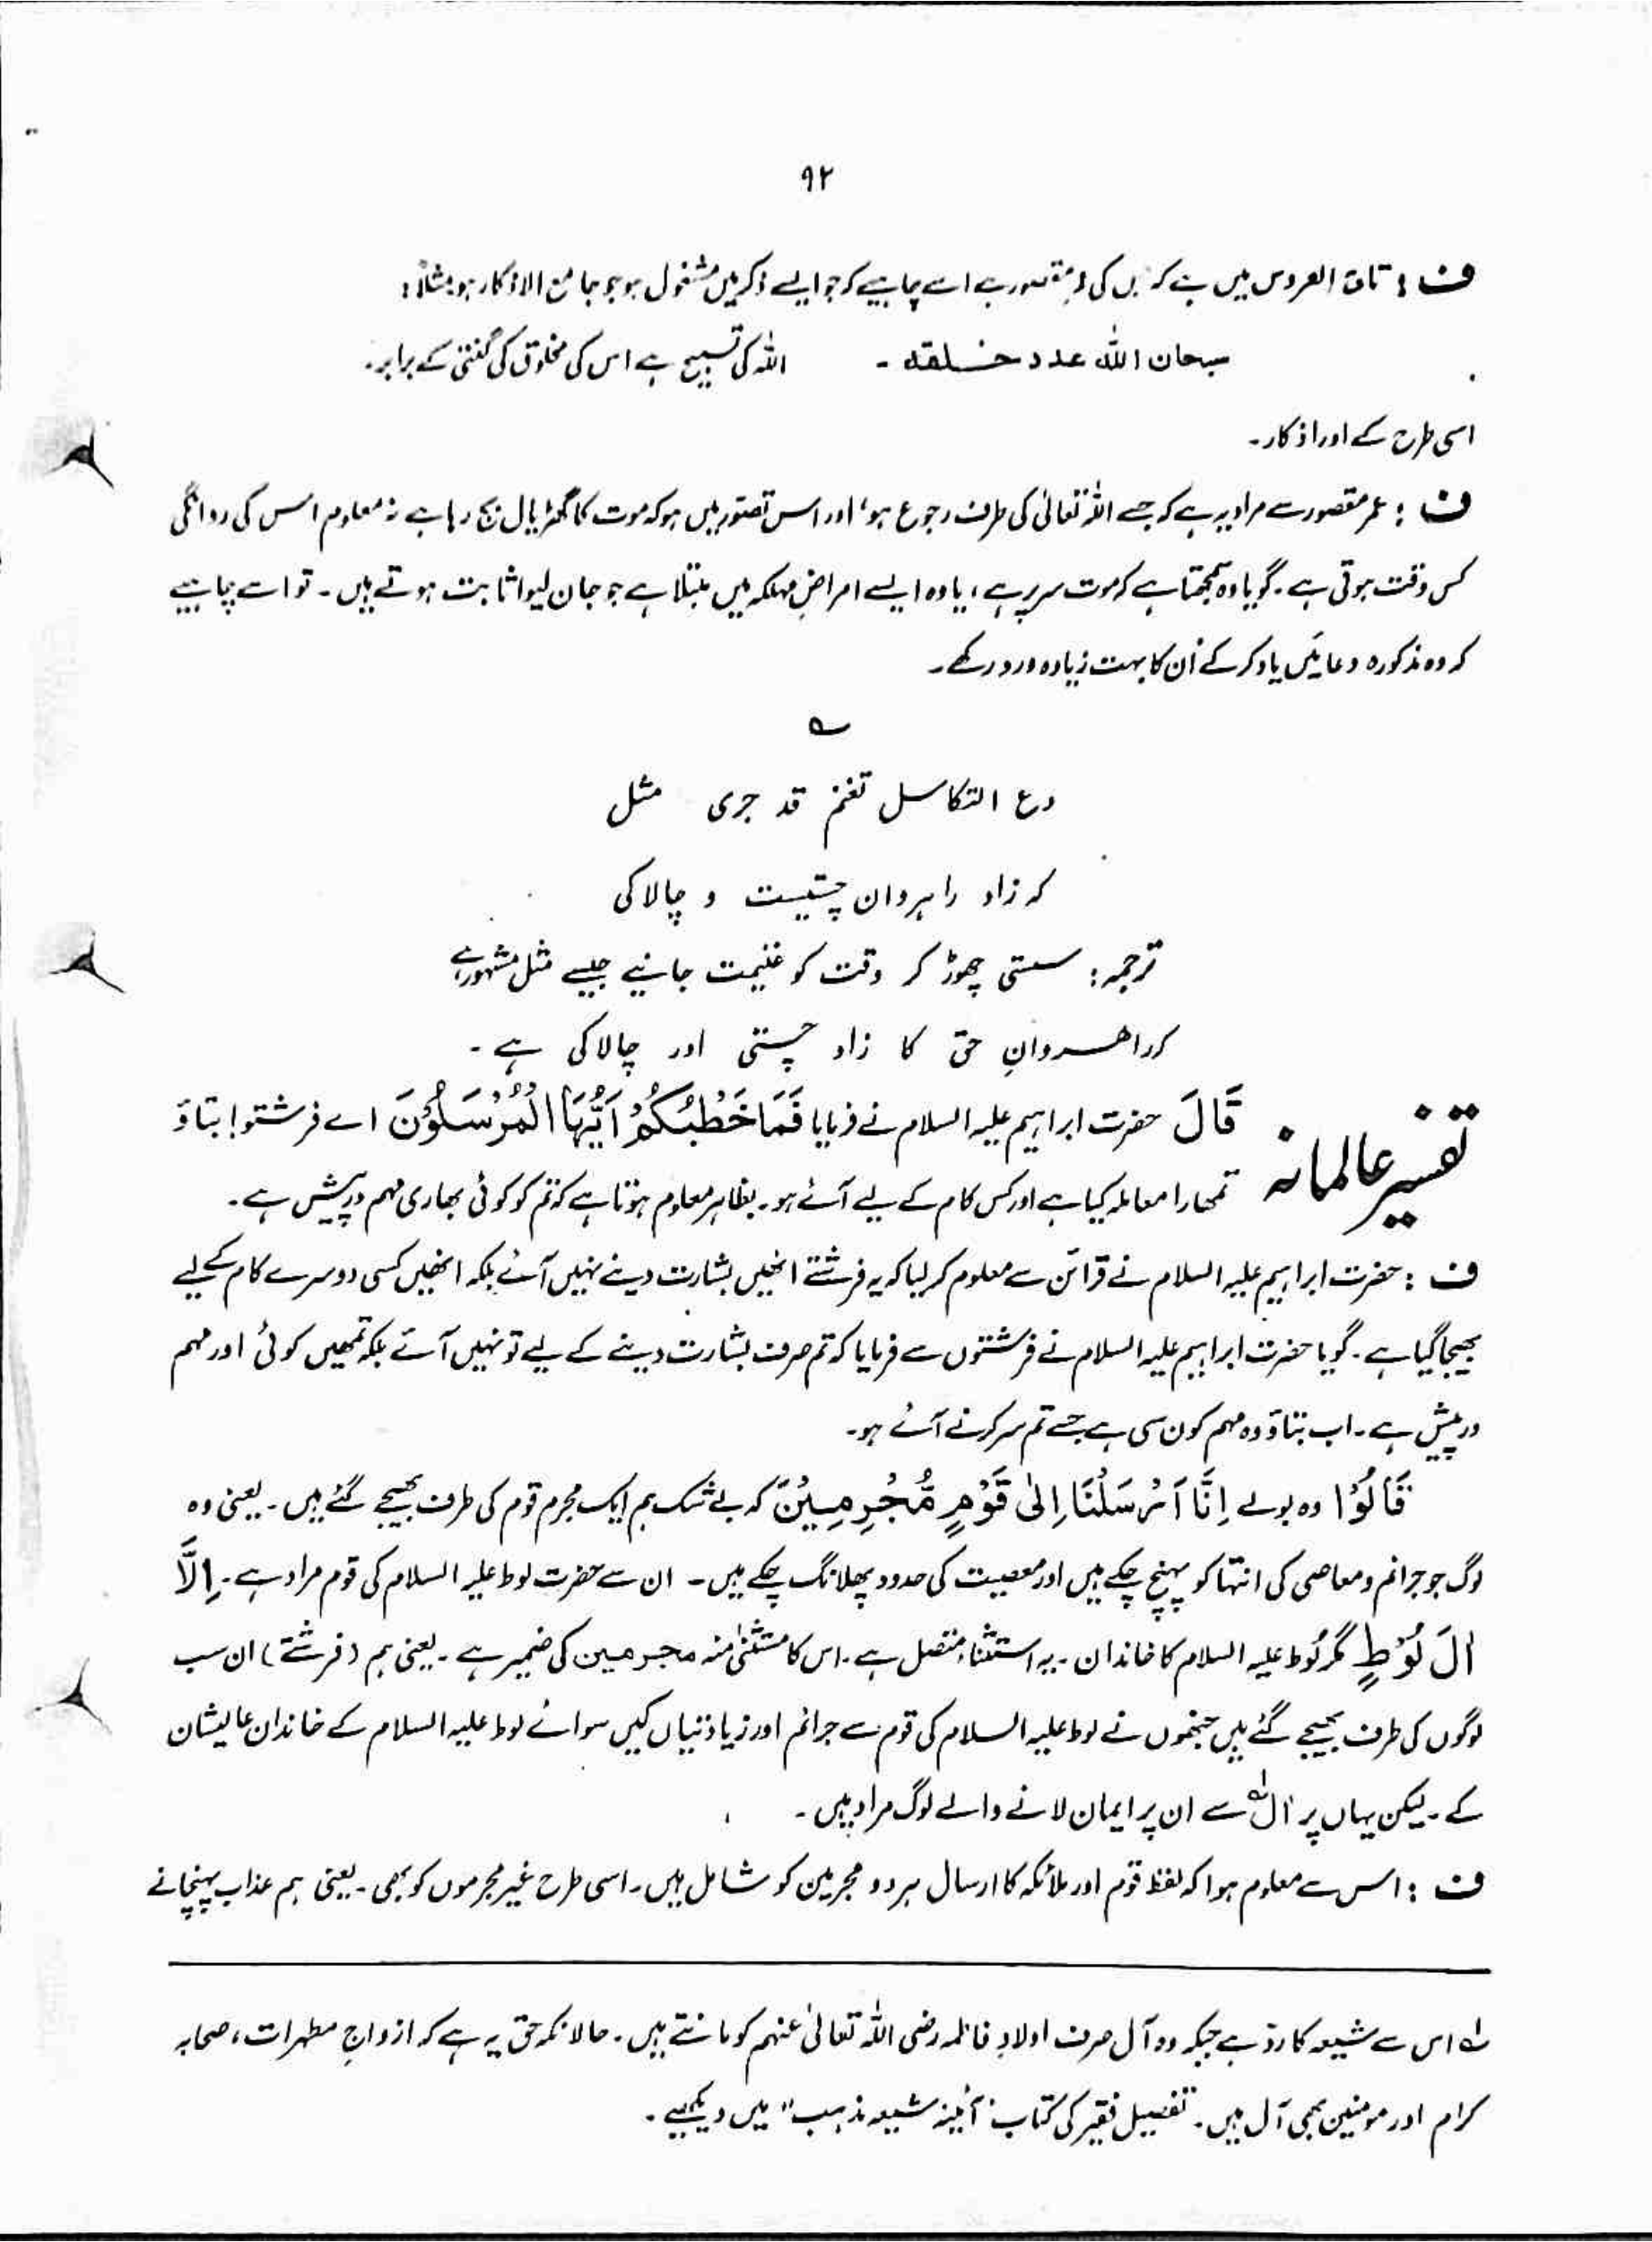 ۹۲
ف : تاج العروس میں ہے کہ جس کی عمر مقصور ہے اسے چاہیے کہ جو ایسے ذکر میں مشغول ہو جو جامع الاذکار ہو مثلاً :
سبحان اللہ عدد خلقہ ۔ اللہ کی تسبیح ہے اس کی مخلوق کی گنتی کے برابر۔
اسی طرح کے اور اذکار۔
ف : عمر مقصور سے مراد یہ ہے کہ جسے اللہ تعالیٰ کی طرف رجوع ہو، اور اس تصور میں ہو کہ موت کا گھڑیال بج رہا ہے نہ معلوم اس کی روانگی
کس وقت ہوتی ہے۔ گویا وہ سمجھتا ہے کہ موت سر پر ہے، یا وہ ایسے امراضِ مہلکہ میں مبتلا ہے جو جان لیوا ثابت ہوتے ہیں۔ تو اسے چاہیے
کہ وہ مذکورہ دعائیں یاد کر کے اُن کا بہت زیادہ ورد رکھے۔
؎
دع التکاسل تغنم قد جری مثل
کہ زاد راہروان چستیست و چالاکی
ترجمہ : سستی چھوڑ کر وقت کو غنیمت جانیے جیسے مثل مشہور ہے
کہ راہروانِ حق کا زاد چستی اور چالاکی ہے۔
تفسیر عالمانہ قَالَ حضرت ابراہیم علیہ السلام نے فرمایا فَمَا خَطْبُكُمْ اَيُّهَا الْمُرْسَلُوْنَ اے فرشتو! بتاؤ
تمہارا معاملہ کیا ہے اور کس کام کے لیے آئے ہو۔ بظاہر معلوم ہوتا ہے کہ تم کو کوئی بھاری مہم درپیش ہے۔
ف : حضرت ابراہیم علیہ السلام نے قرائن سے معلوم کر لیا کہ یہ فرشتے انھیں بشارت دینے نہیں آئے بلکہ انھیں کسی دوسرے کام کے لیے
بھیجا گیا ہے۔ گویا حضرت ابراہیم علیہ السلام نے فرشتوں سے فرمایا کہ تم صرف بشارت دینے کے لیے تو نہیں آئے بلکہ تمھیں کوئی اور مہم
درپیش ہے۔ اب بتاؤ وہ مہم کون سی ہے جسے تم سر کرنے آئے ہو۔
قَالُوْا وہ بولے اِنَّا اُرْسِلْنَا اِلٰی قَوْمٍ مُّجْرِمِیْنَ کہ بے شک ہم ایک مجرم قوم کی طرف بھیجے گئے ہیں۔ یعنی وہ
لوگ جو جرائم و معاصی کی انتہا کو پہنچ چکے ہیں اور معصیت کی حدود پھلانگ چکے ہیں۔ ان سے حضرت لوط علیہ السلام کی قوم مراد ہے۔ اِلَّا
اٰلَ لُوْطٍ مگر لُوط علیہ السلام کا خاندان۔ یہ استثناء متصل ہے۔ اس کا مستثنیٰ منہ مجرمین کی ضمیر ہے۔ یعنی ہم (فرشتے) ان سب
لوگوں کی طرف بھیجے گئے ہیں جنھوں نے لوط علیہ السلام کی قوم سے جرائم اور زیادتیاں کیں سوائے لوط علیہ السلام کے خاندان عالیشان
کے۔ لیکن یہاں پر اٰل لہ سے ان پر ایمان لانے والے لوگ مراد ہیں۔
ف : اس سے معلوم ہوا کہ لفظ قوم اور ملائکہ کا ارسال ہر دو مجرمین کو شامل ہیں۔ اسی طرح غیر مجرموں کو بھی۔ یعنی ہم عذاب پہنچانے
لہ اس سے شیعہ کا رد ہے جبکہ وہ آل صرف اولادِ فاطمہ رضی اللہ تعالیٰ عنہم کو مانتے ہیں۔ حالانکہ حق یہ ہے کہ ازواجِ مطہرات، صحابہ
کرام اور مومنین بھی آل ہیں۔ تفصیل فقیر کی کتاب "آئینہ شیعہ مذہب" میں دیکھیے۔